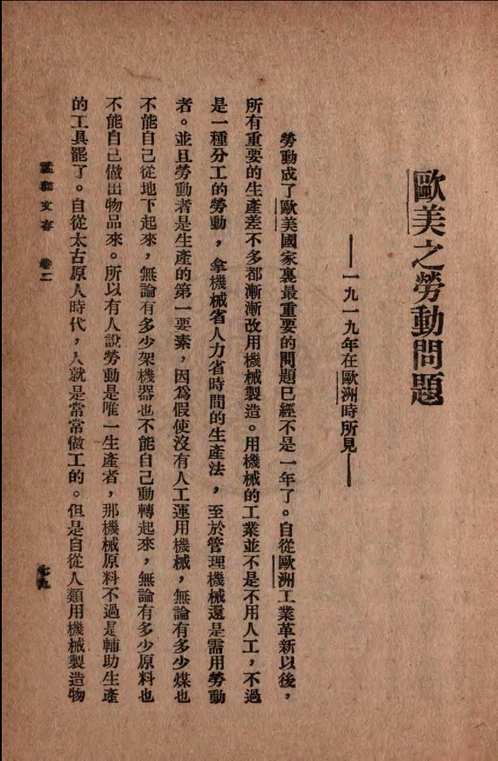 歐美之勞動問題
——一九一九年在歐洲時所見——
勞動成了歐美國家裏最重要的問題已經不是一年了。自從歐洲工業革新以後，
所有重要的生產差不多都漸漸改用機械製造。用機械的工業並不是不用人工，不過
是一種分工的勞動，拿機械省人力省時間的生產法，至於管理機械還是需用勞動
者。並且勞動者是生產的第一要素，因爲假使沒有人工運用機械，無論有多少煤也
不能自己從地下起來，無論有多少架機器也不能自己動轉起來，無論有多少原料也
不能自己做出物品來。所以有人說勞動是唯一生產者，那機械原料不過是輔助生產
的工具罷了。自從太古原人時代，人就是常常做工的。但是自從人類用機械製造物
孟和文存　卷二
七九